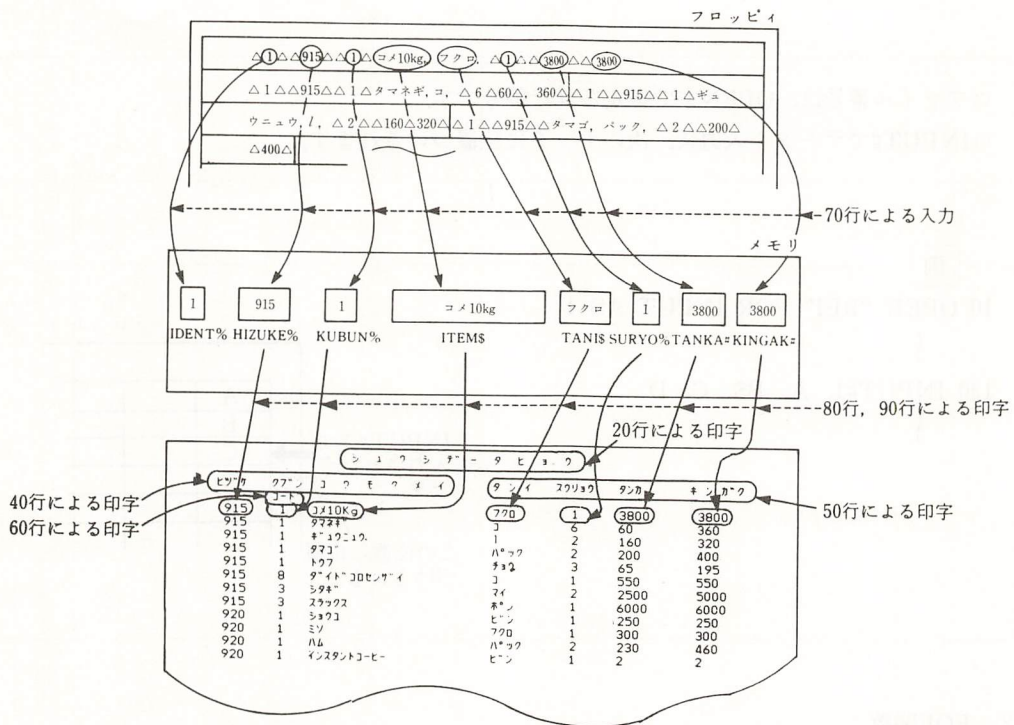 フロッピィ
△1△△915△△1△コメ10kg, フクロ, △1△△3800△△3800
△1△△915△△1△タマネギ, コ, △6△60△, 360△△1△△915△△1△ギュ
ウニュウ, l, △2△△160△320△△1△△915△△タマゴ, パック, △2△△200△
△400△
70行による入力
メモリ
1 915 1 コメ10kg フクロ 1 3800 3800
IDENT% HIZUKE% KUBUN% ITEM$ TANI$ SURYO% TANKA# KINGAK#
80行, 90行による印字
20行による印字
シュウシデータヒョウ
40行による印字
ヒヅケ クブン コウモクメイ タンイ スウリョウ タンカ キンガク
50行による印字
60行による印字
コード
915 1 コメ10Kg フクロ 1 3800 3800
915 1 タマネギ コ 6 60 360
915 1 ギュウニュウ l 2 160 320
915 1 タマゴ パック 2 200 400
915 1 トウフ チョウ 3 65 195
915 8 ダイドコロセンザイ コ 1 550 550
915 3 シタギ マイ 2 2500 5000
915 3 スラックス ホン 1 6000 6000
920 1 ショウユ ビン 1 250 250
920 1 ミソ フクロ 1 300 300
920 1 ハム パック 2 230 460
920 1 インスタントコーヒー ビン 1 2 2